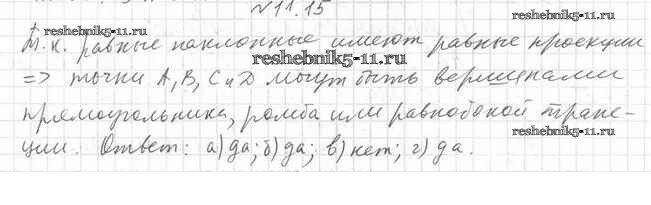 №11.15
reshebnik5-11.ru
Т.к. равные наклонные имеют равные проекции
reshebnik5-11.ru
=> точки A, B, C и D могут быть вершинами
прямоугольника, ромба или равнобокой трапе-
reshebnik5-11.ru
ции. Ответ: а) да; б) да; в) нет; г) да.